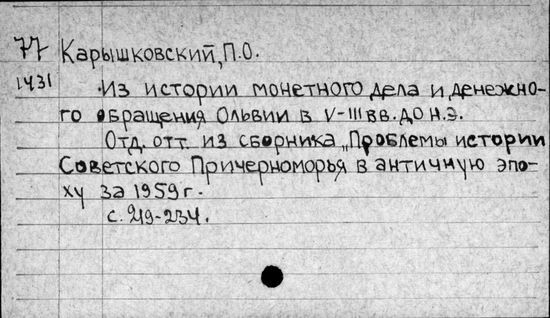 77 Карышковский, П.О.
1431 Из истории монетного дела и денежно-
го обращения Ольвии в V-III вв. до н.э.
Отд. отт. из сборника „Проблемы истории
Советского Причерноморья в античную эпо-
ху за 1959 г.
с. 219-234.